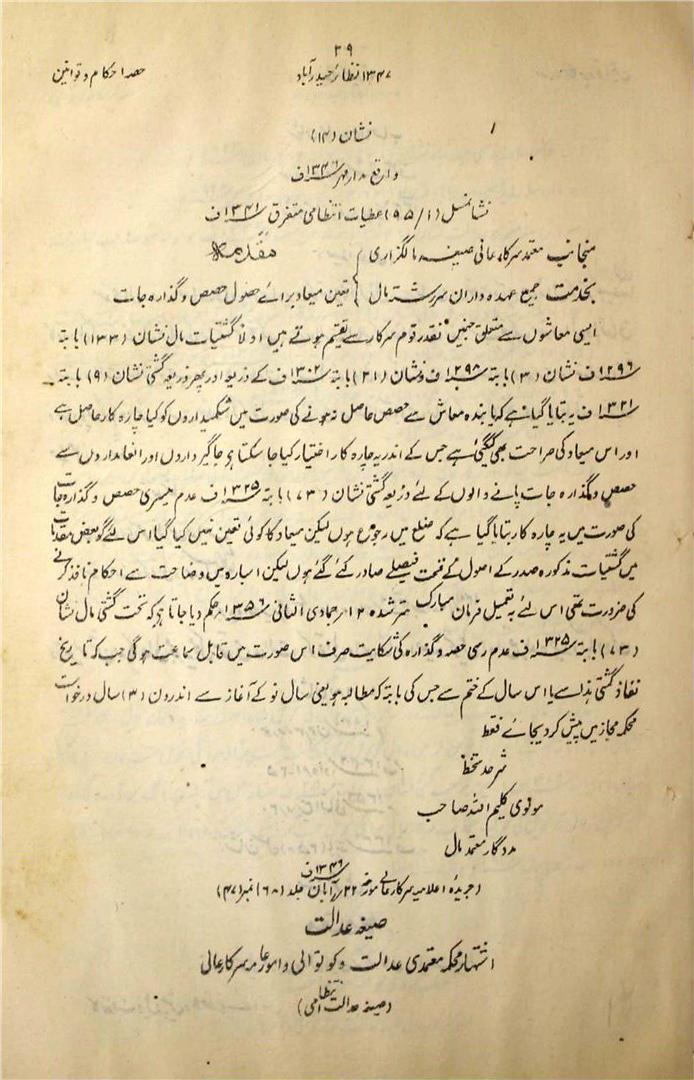 ۲۹
۱۳۴۷ نظائر حیدرآباد
حصہ احکام و قوانین
نشان (۱۴)
واقع مہر ۱۳۴۶ ف
نشان مسل (۹۵/۱) عطیات انتظامی متفرق ۱۳۴۱ ف
منجانب معتمد سرکار عالی صیغہ مالگزاری
مقدمہ
بخدمت جمیع عہدہ داران سررشتہ مال
تعین میعاد برائے حصول حصص و گذارہ جات
ایسی معاشوں سے متعلق جنمیں نقد رقوم سرکار سے تقسیم ہوتے ہیں اولاً گشتیات مال نشان (۱۳۳) بابتہ
۱۲۹۶ ف نشان (۳) بابتہ ۱۲۹۸ ف و نشان (۲۱) بابتہ ۱۳۰۲ ف کے ذریعہ اور پھر ذریعہ گشتی نشان (۹) بابتہ
۱۳۲۱ ف یہ بتایا گیا ہے کہ یابندہ معاش سے حصص حاصل نہ ہونے کی صورت میں شکمیداروں کو کیا چارہ کار حاصل ہے
اور اس میعاد کی صراحت بھی کیگئی ہے جس کے اندر یہ چارہ کار اختیار کیا جا سکتا ہو جاگیر داروں اور انعامداروں سے
حصص و گذارہ جات پانے والوں کے لئے ذریعہ گشتی نشان (۷۳) بابتہ ۱۳۲۵ ف عدم میسری حصص و گذارہ جات
کی صورت میں یہ چارہ کار بتایا گیا ہے کہ ضلع میں رجوع ہوں لیکن میعاد کا کوئی تعین نہیں کیا گیا اس لئے گو بعض مقدمات
میں گشتیات مذکورہ صدر کے اصول کے تحت فیصلے صادر کئے گئے ہوں لیکن اسبارہ میں وضاحت سے احکام نافذ کرنے
کی ضرورت تھی اس لئے بہ تعمیل فرمان مبارک مترشدہ جمادی الثانی ۱۳۵۶ حکم دیا جاتا ہے کہ تحت گشتی مال نشان
(۷۳) بابتہ ۱۳۲۵ ف عدم رسی حصہ و گذارہ کی شکایت صرف اس صورت میں قابل سماعت ہوگی جب کہ تاریخ
نفاذ گشتی ہذا سے یا اس سال کے ختم سے جس کی بابتہ کہ مطالبہ ہو یعنی سال نو کے آغاز سے اندرون (۳) سال درخواست
محکمہ مجاز میں پیش کر دیجائے فقط
شرحد ستخط
مولوی کلیم اللہ صاحب
مددگار معتمد مال
(جریدۂ اعلامیہ سرکار عالی مورخہ ۲۲ آبان ۱۳۴۶ ف جلد (۶۸) نمبر (۴۷)
صیغہ عدالت
اشتہار محکمہ معتمدی عدالت و کوتوالی و امور عامہ سرکار عالی
(صیغہ عدالت انتظامی)